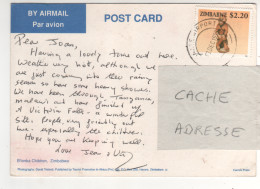 BY AIRMAIL
Par avion
POST CARD
ZIMBABWE $2.20
Dear Joan,
Having a lovely time out here.
Weather very hot, although we
are just coming into the rainy
season so have some heavy showers.
We have been through Tanzania,
Malawi and have finished up
at Victoria Falls - a wonderful
people very friendly
- especially the children.
Hope you are keeping well.
Love
CACHE
ADRESSE
Children, Zimbabwe